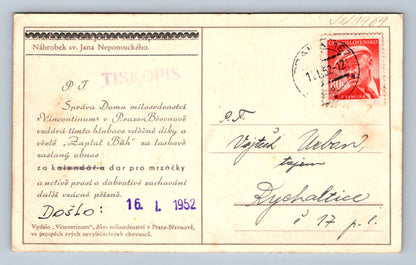 JN1969
Náhrobek sv. Jana Nepomuckého.
TISKOPIS
P. T.
Správa Domu milosrdenství
„Vincentinum“ v Praze-Břevnově
vzdává tímto hluboce vděčné díky a
vřelé „Zaplať Bůh“ za laskavě
zaslaný obnos
za kalendář a dar pro mrzáčky
a uctivě prosí o dobrotivé zachování
další vzácné přízně.
Došlo: 16. I. 1952
Vydalo „Vincentinum“, dům milosrdenství v Praze-Břevnově,
ve prospěch svých nevyléčitelných chovanců.
ČESKOSLOVENSKO
P.T.
Vojtěch Urban,
Rychaltice
č 17 p. l.